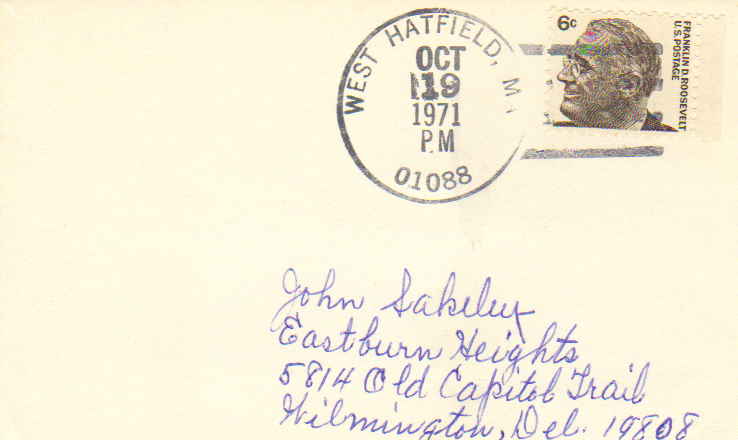 WEST HATFIELD, MA
OCT
19
1971
PM
01088
6c
FRANKLIN D. ROOSEVELT
U.S. POSTAGE
John Sakeley
Eastburn Heights
5814 Old Capitol Trail
Wilmington, Del. 19808